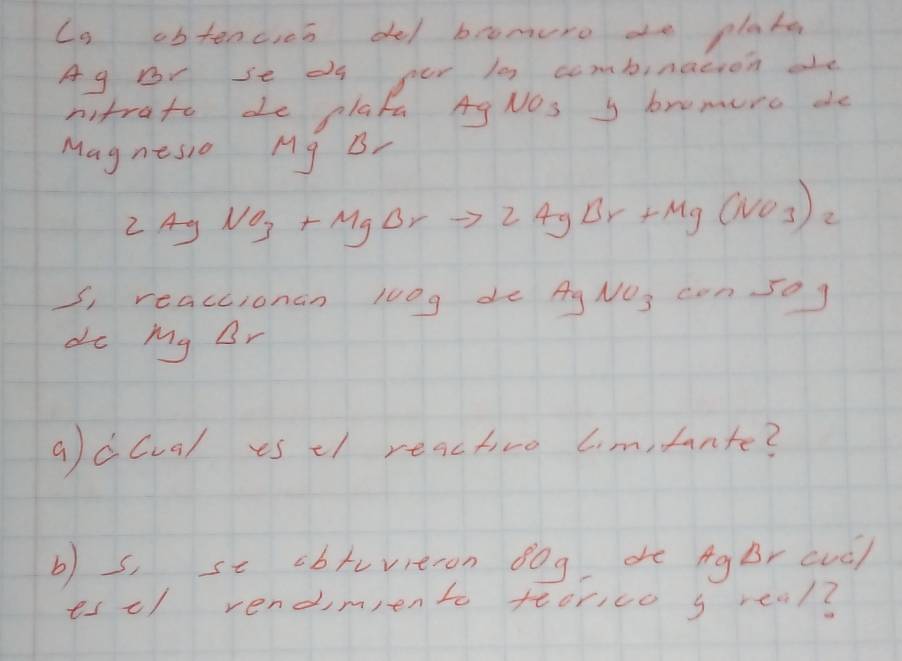 La obtención del bromuro de plata
Ag Br se da por la combinación de
nitrato de plata AgNO3 y bromuro de
Magnesio Mg Br
2 Ag NO3 + MgBr → 2 AgBr + Mg (NO3)2
Si reaccionan 100g de AgNO3 con 50g
de Mg Br
a) ¿Cual es el reactivo limitante?
b) Si se obtuvieron 80g de AgBr cuál
es el rendimiento teórico y real?